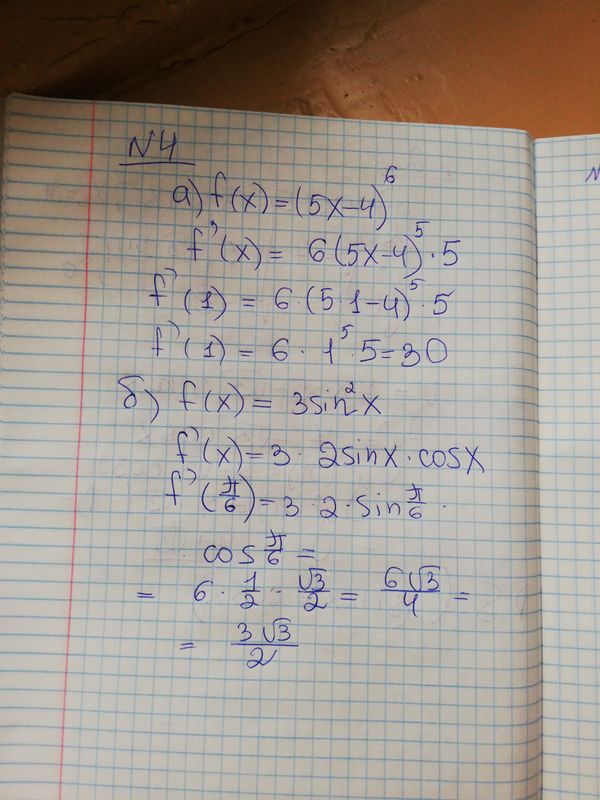 N4
а) f(x) = (5x-4)⁶
f'(x) = 6(5x-4)⁵·5
f'(1) = 6·(5·1-4)⁵·5
f'(1) = 6·1⁵·5=30
б) f(x) = 3sin²x
f'(x)=3·2sinx·cosx
f'(π/6)=3·2·sin π/6·
cos π/6 =
= 6·1/2·√3/2 = 6√3/4 =
= 3√3/2
N